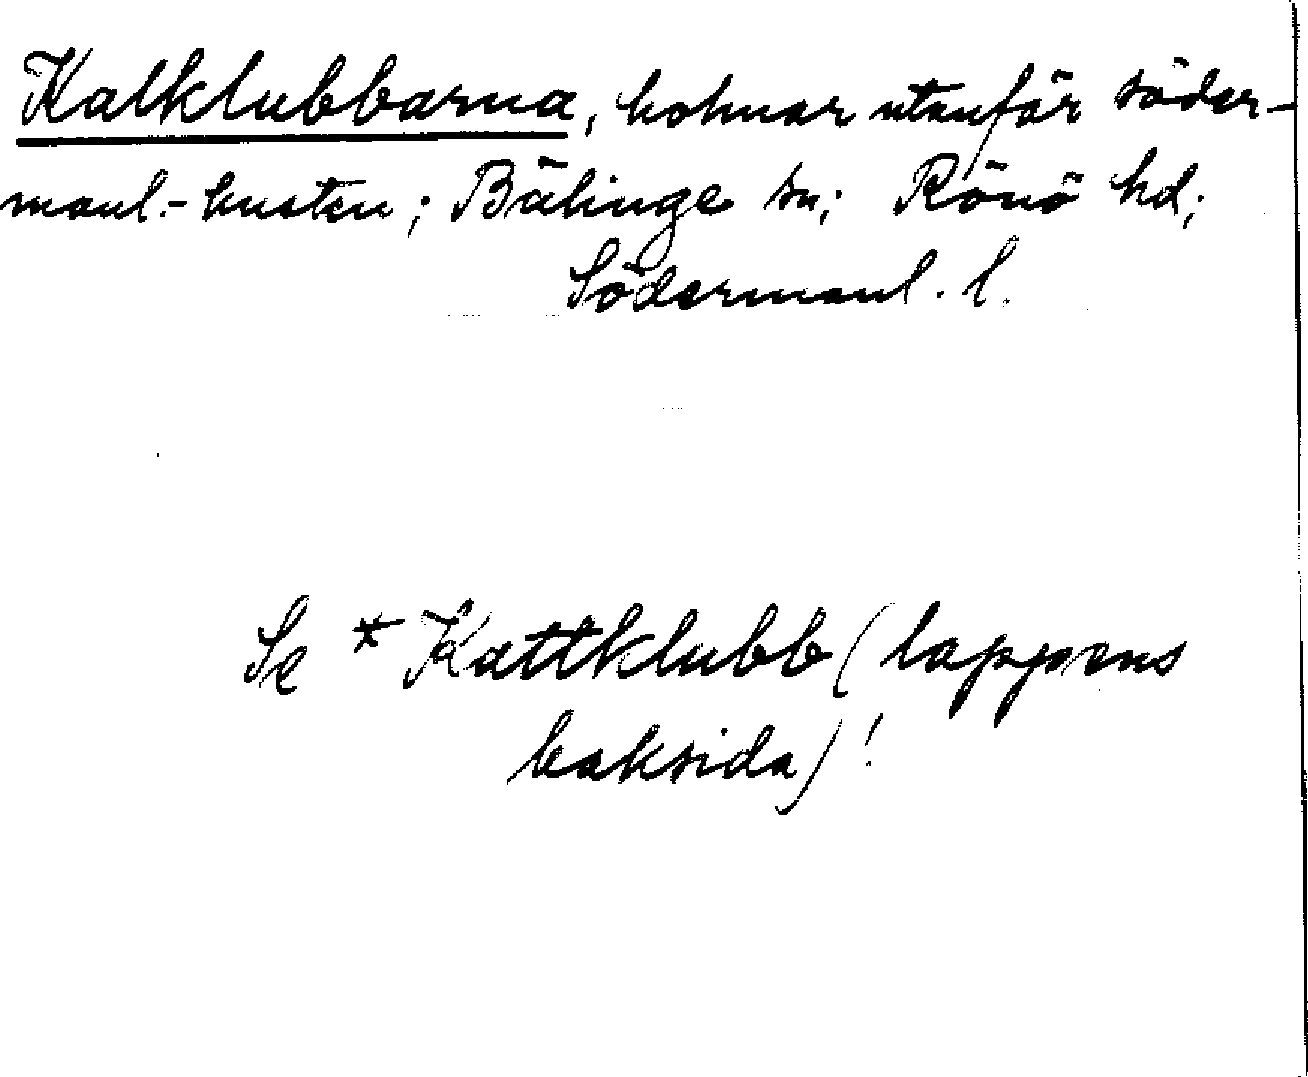 Kalklubbarna, holmar utanför söder-
manl.-kusten; Bälinge sn; Rönö hd;
Södermanl. l.
Se *Kattklubb (lappens
baksida)!